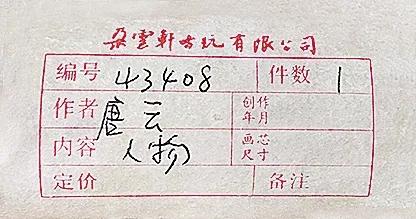 朵雲軒古玩有限公司
编号 43408 件数 1
作者 唐云 创作年月
内容 人物 画芯尺寸
定价 备注